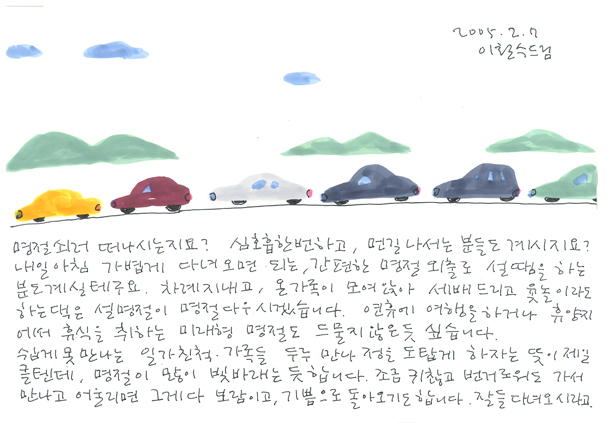 2005. 2. 7
이철수드림
명절 쇠러 떠나시는지요? 심호흡한번하고, 먼길나서는 분들도 계시지요?
내일아침 가볍게 다녀오면 되는, 간편한 명절 외출로 설땜을 하는
분도계실테주요. 차례지내고, 온가족이 모여앉아 세배드리고 윷놀이라도
하는댁은 설명절이 명절다우시겠습니다. 연휴에 여행을하거나 휴양지
에서 휴식을 취하는 미래형 명절도 드물지않은듯 싶습니다.
쉽게 못만나는 일가친척·가족들 두루 만나 정을 도탑게 하자는 뜻이제일
클텐데, 명절이 많이 빛바래는 듯 합니다. 조금 귀찮고 번거로워도 가서
만나고 어울리면 그게다 보람이고, 기쁨으로 돌아오기도합니다. 잘들 다녀오시라고.